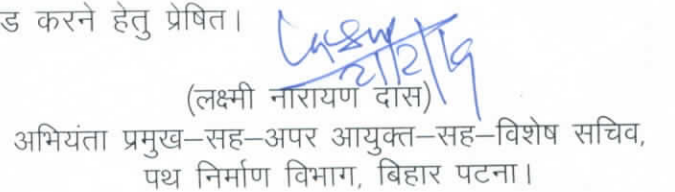 ड करने हेतु प्रेषित।
21/2/19
(लक्ष्मी नारायण दास)
अभियंता प्रमुख–सह–अपर आयुक्त–सह–विशेष सचिव,
पथ निर्माण विभाग, बिहार पटना।